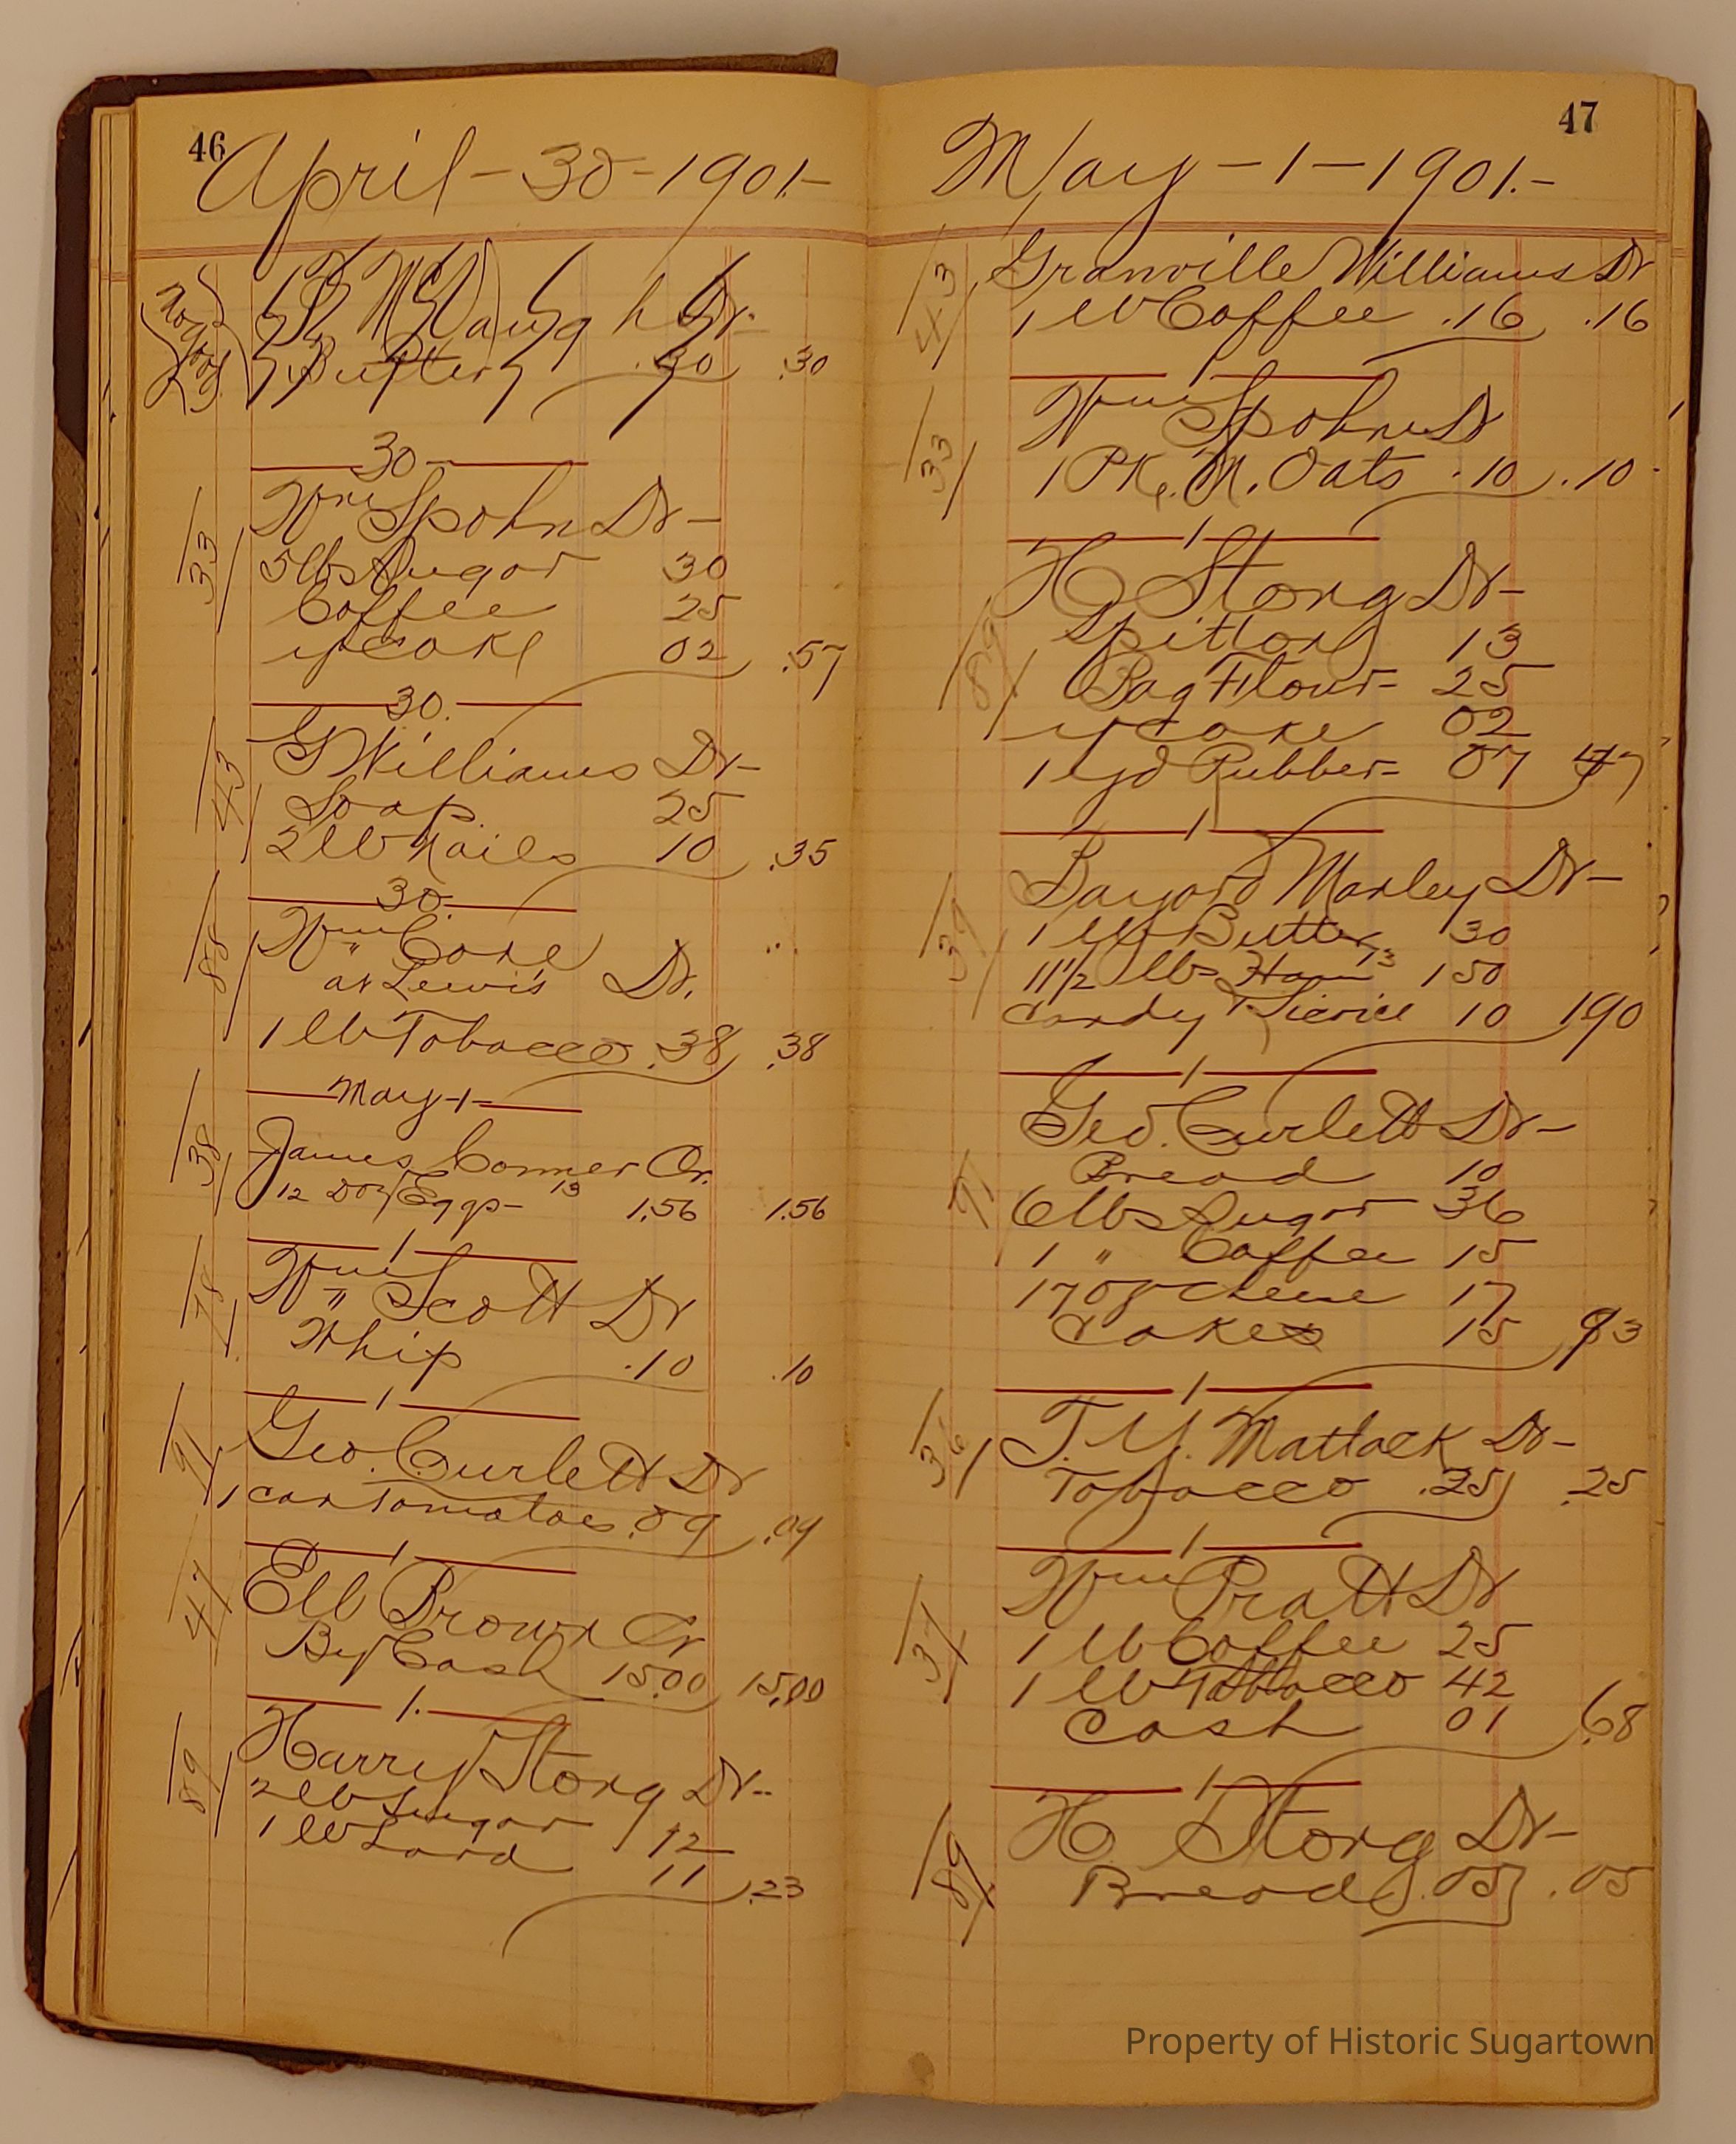 46
April - 30 - 1901 -
Dr.
Butter .30 .30
30
33
Wm Spohn Dr -
5 lbs Sugar 30
Coffee 25
y cake 02 .57
30.
43
G Williams Dr -
Soap 25
2 lb Nails 10 .35
30.
88
Wm Cone
at Lewis Dr.
1 lb Tobacco .38 .38
May - 1 -
38
James Conner Cr.
12 Doz Eggs - 13 1.56 1.56
1
78
Wm Scott Dr
Whip .10 .10
1
91
Geo. Curlett Dr
1 can Tomatoes .09 .09
1
47
Ell Brown Cr
By Cash 15.00 15.00
1.
89
Harry Stong Dr -
2 lb Sugar 12
1 lb Lard 11 .23
47
May - 1 - 1901. -
43
Granville Williams Dr
1 lb Coffee .16 .16
1
33
Wm Spohn Dr
1 PK. M. Oats .10 .10
1
89
H Stong Dr -
Spittoon 13
Bag Flour = 25
y cake 02
1 yd Rubber = 07 47
1
39
Bayard Marley Dr -
1 lb Butter 30
11 1/2 lbs Ham 13 150
Candy 10 190
1
91
Geo. Curlett Dr -
Bread 10
6 lbs Sugar 36
1 " Coffee 15
17 oz cheese 17
Cakes 15 93
1
36
T. Y. Matlack Dr -
Tobacco .25 .25
1
37
Wm Pratt Dr
1 lb Coffee 25
1 lb Tobacco 42
Cash 01 .68
1
89
H Stong Dr -
Bread .05 .05
Property of Historic Sugartown